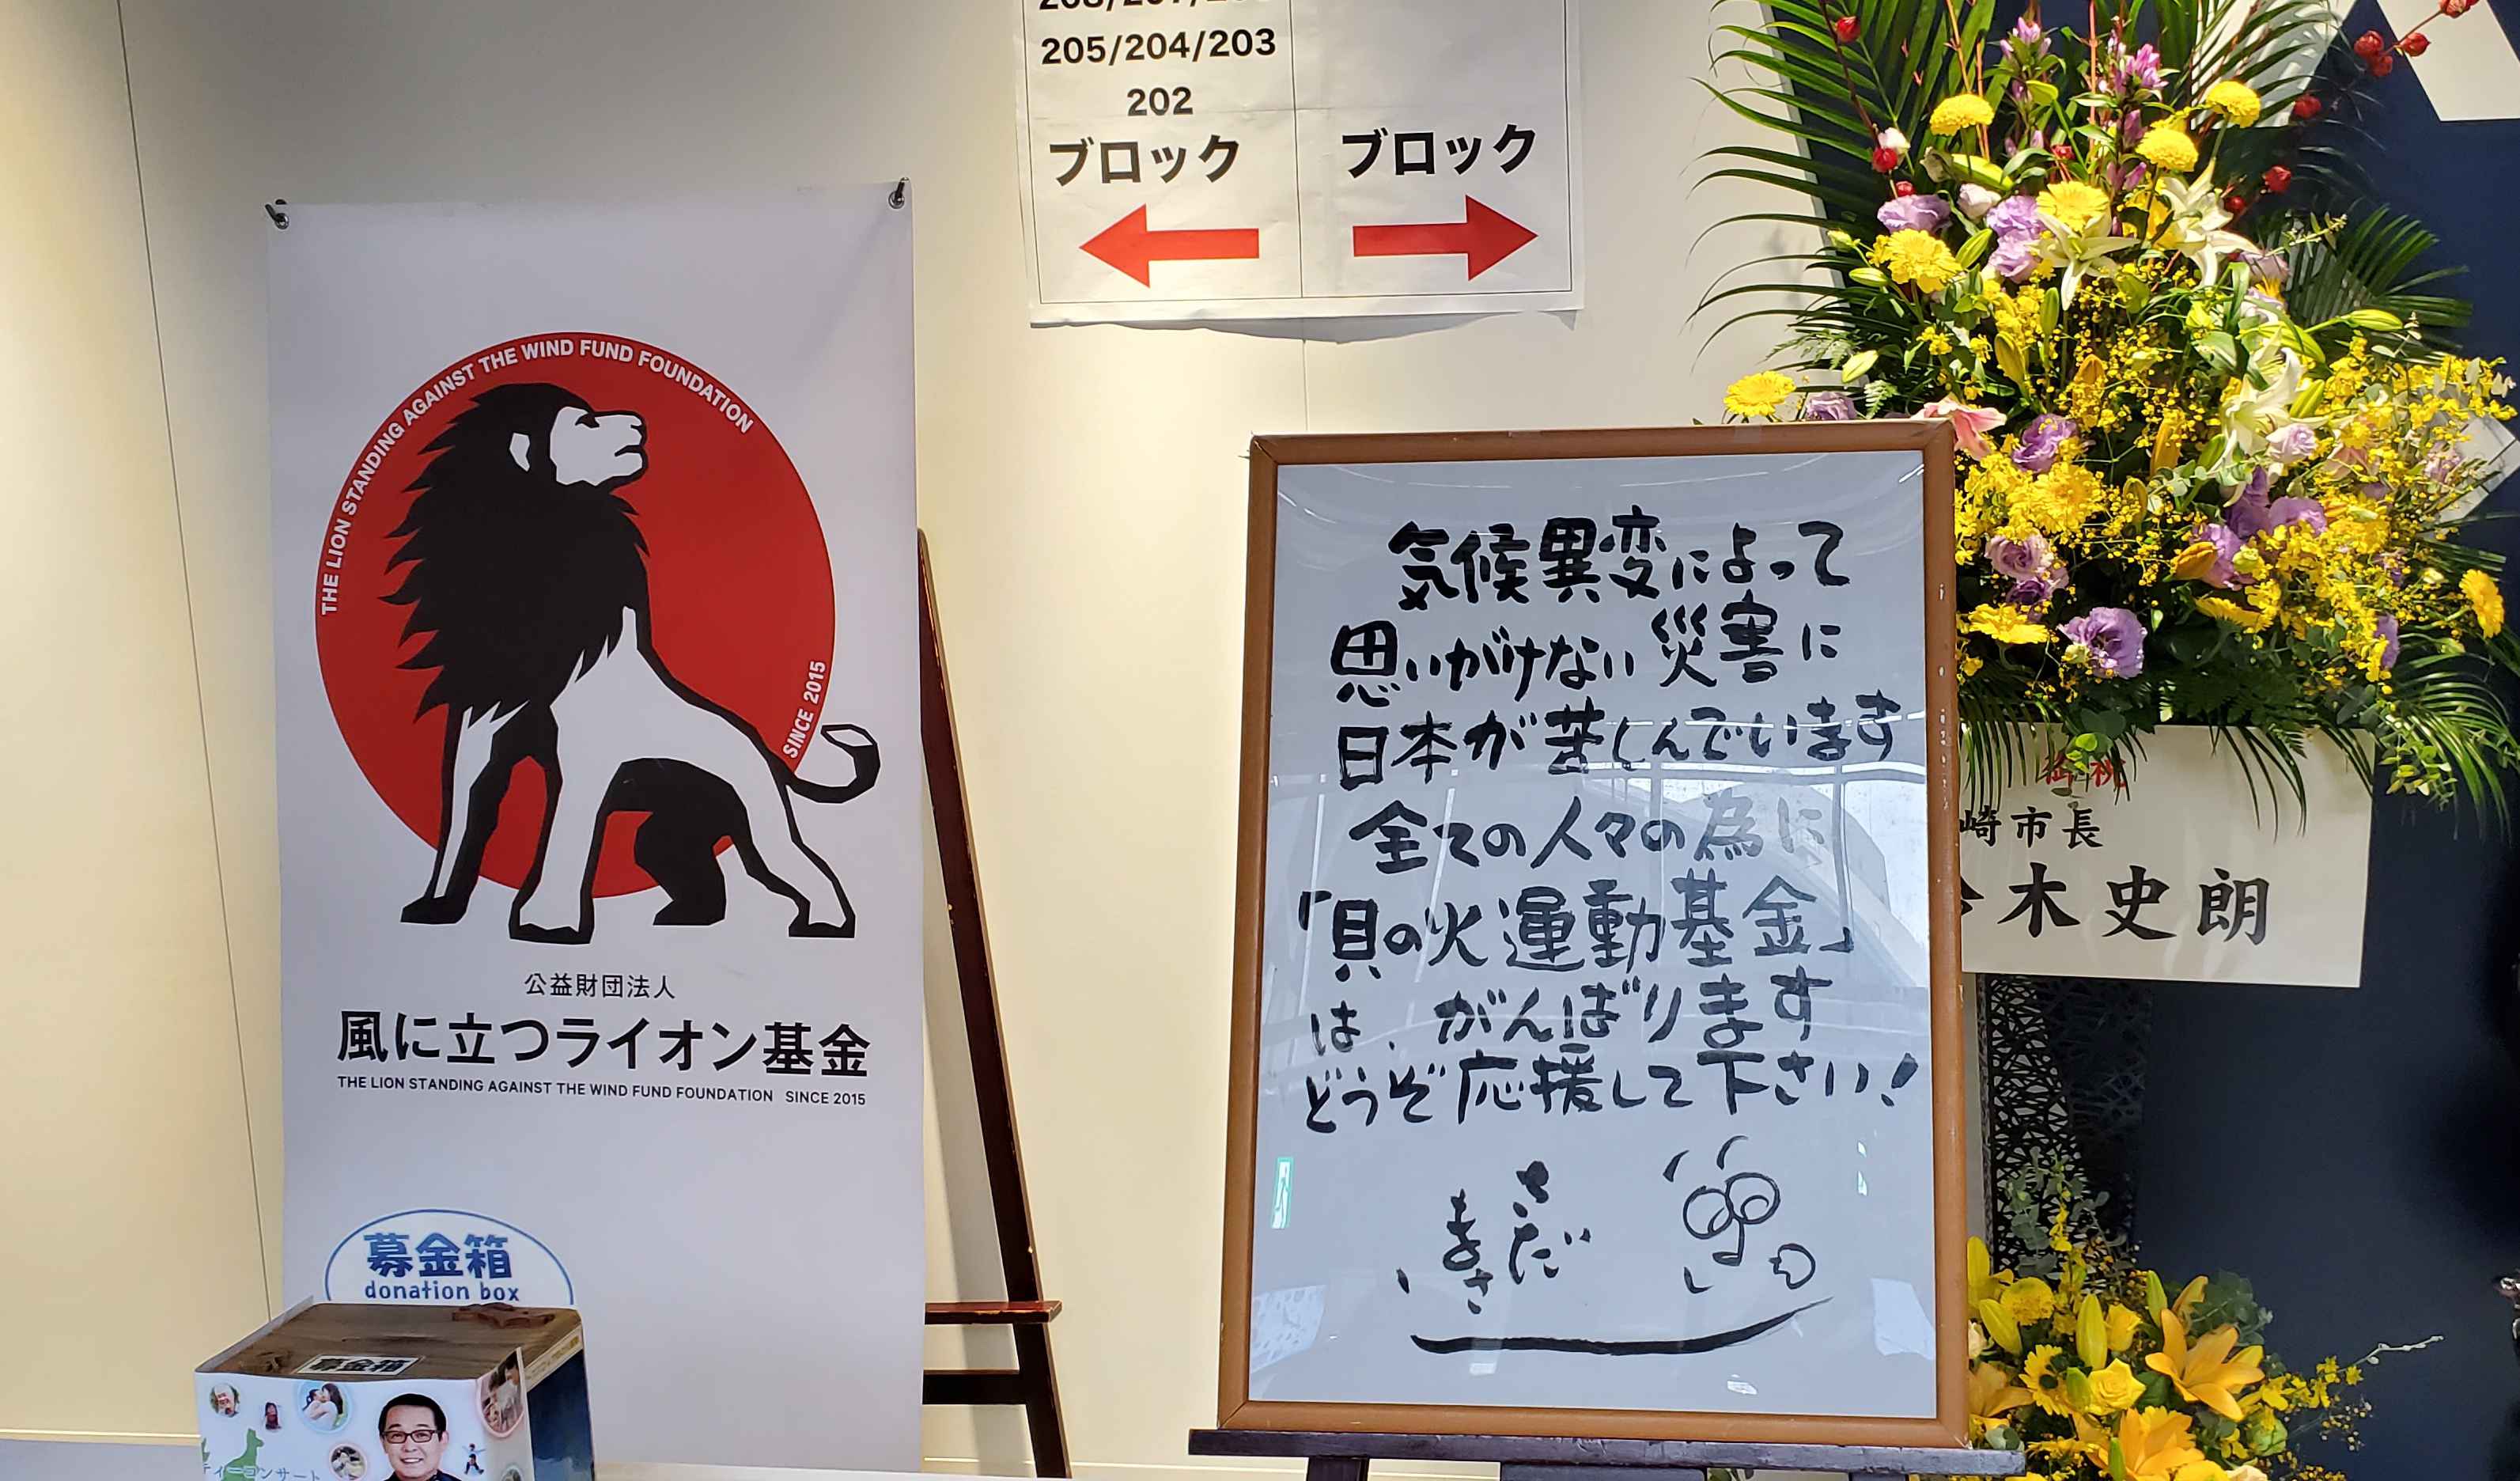 205/204/203
202
ブロック
ブロック
THE LION STANDING AGAINST THE WIND FUND FOUNDATION
SINCE 2015
公益財団法人
風に立つライオン基金
THE LION STANDING AGAINST THE WIND FUND FOUNDATION SINCE 2015
募金箱
donation box
募金箱
ティーコンサート
気候異変によって
思いがけない災害に
日本が苦しんでいます
全ての人々の為に
「貝の火運動基金」
は、がんばります
どうぞ応援して下さい!
さだ
まさし
御祝
崎市長
木史朗